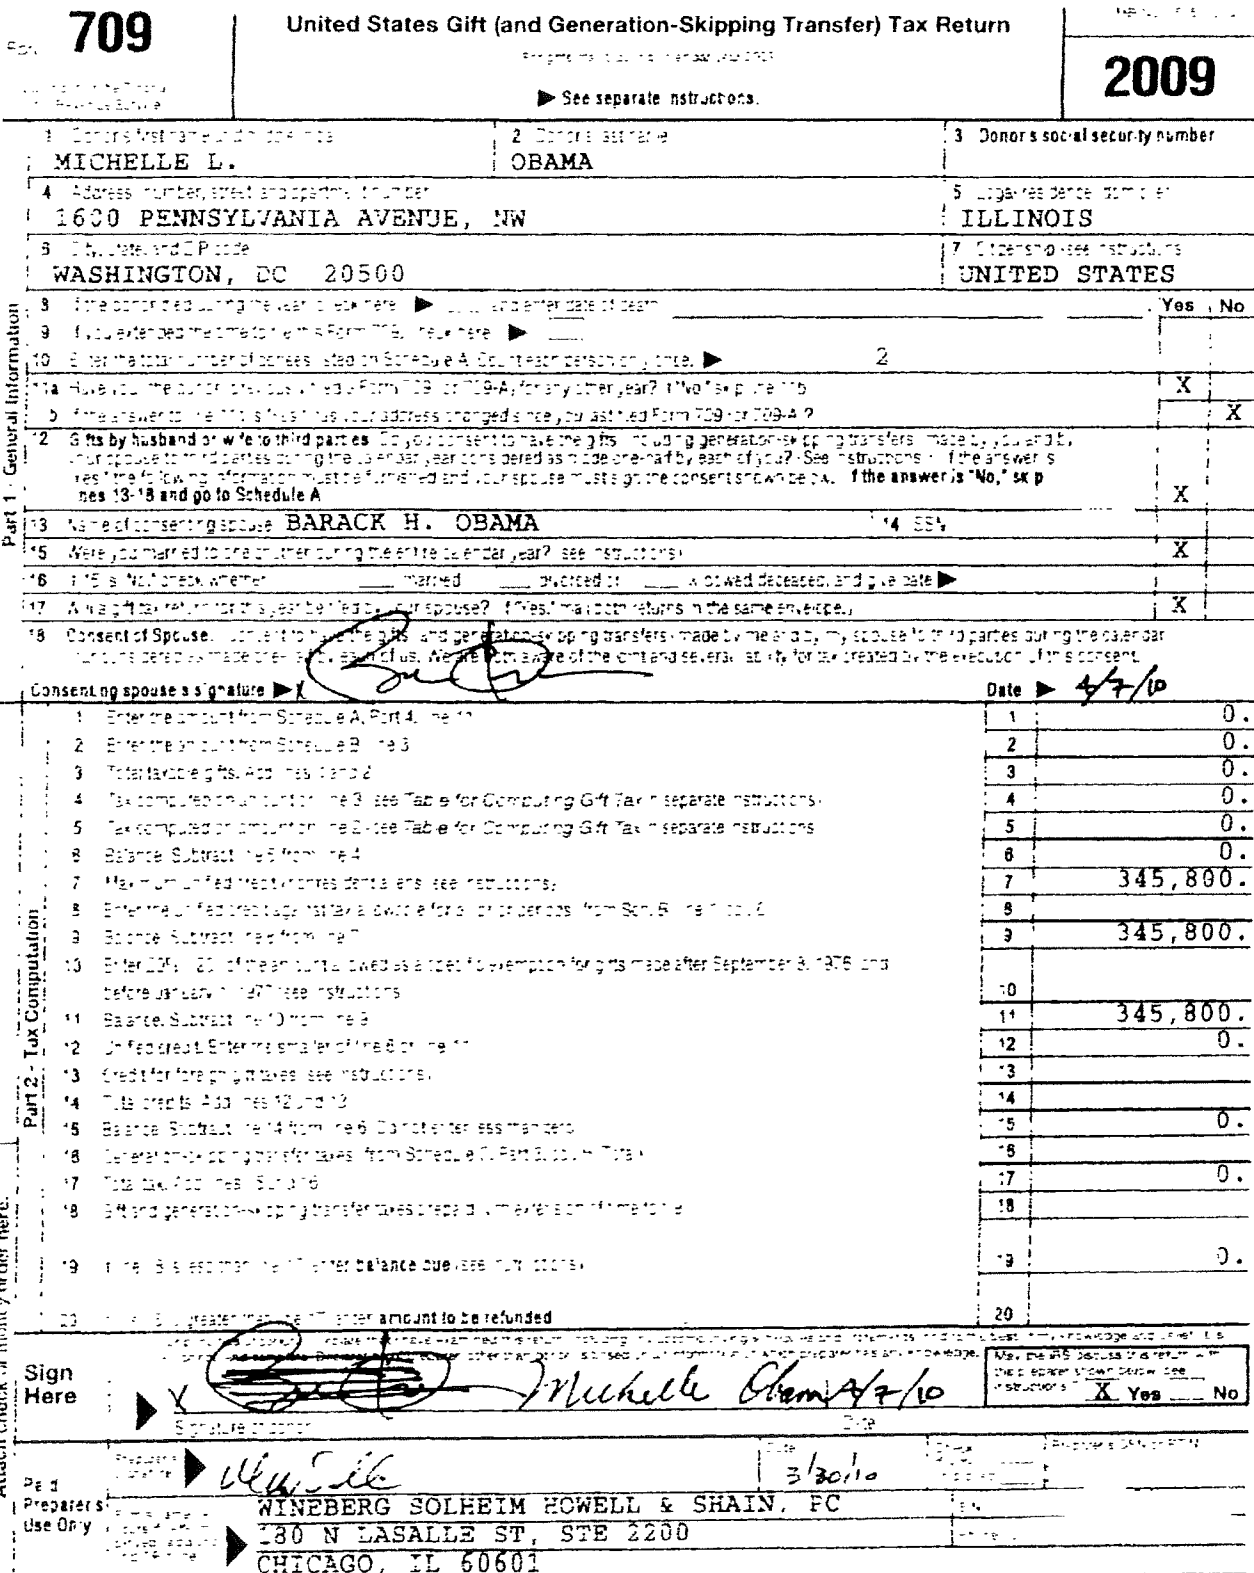 709
United States Gift (and Generation-Skipping Transfer) Tax Return
2009
► See separate instructions.
1 Donor's first name and middle initial
2 Donor's last name
3 Donor's social security number
MICHELLE L.
OBAMA
4 Address (number, street, and apartment number)
5 Legal residence (domicile)
1600 PENNSYLVANIA AVENUE, NW
ILLINOIS
6 City, state, and ZIP code
7 Citizenship (see instructions)
WASHINGTON, DC 20500
UNITED STATES
Part 1 - General Information
8 If the donor died during the year, check here ► and enter date of death
Yes No
9 If you extended the time to file this Form 709, check here ►
10 Enter the total number of donees listed on Schedule A. Count each person only once. ► 2
11a Have you (the donor) previously filed a Form 709 (or 709-A) for any other year? If "No," skip line 11b X
b If the answer to line 11a is "Yes," has your address changed since you last filed Form 709 (or 709-A)? X
12 Gifts by husband or wife to third parties. Do you consent to have the gifts (including generation-skipping transfers) made by you and by
your spouse to third parties during the calendar year considered as made one-half by each of you? (See instructions.) (If the answer is
"Yes," the following information must be furnished and your spouse must sign the consent shown below. If the answer is "No," skip
lines 13-18 and go to Schedule A X
13 Name of consenting spouse BARACK H. OBAMA 14 SSN
15 Were you married to one another during the entire calendar year? (see instructions) X
16 If 15 is "No," check whether married divorced or widowed/deceased, and give date ►
17 Will a gift tax return for this year be filed by your spouse? (If "Yes," mail both returns in the same envelope.) X
18 Consent of Spouse. I consent to have the gifts (and generation-skipping transfers) made by me and by my spouse to third parties during the calendar
year considered as made one-half by each of us. We are both aware of the joint and several liability for tax created by the execution of this consent.
Consenting spouse's signature ► X Date ► 4/7/10
Part 2 - Tax Computation
1 Enter the amount from Schedule A, Part 4, line 11 1 0.
2 Enter the amount from Schedule B, line 3 2 0.
3 Total taxable gifts. Add lines 1 and 2 3 0.
4 Tax computed on amount on line 3 (see Table for Computing Gift Tax in separate instructions) 4 0.
5 Tax computed on amount on line 2 (see Table for Computing Gift Tax in separate instructions) 5 0.
6 Balance. Subtract line 5 from line 4 6 0.
7 Maximum unified credit (nonresident aliens, see instructions) 7 345,800.
8 Enter the unified credit against tax allowable for all prior periods (from Sch. B, line 1, col. C) 8
9 Balance. Subtract line 8 from line 7 9 345,800.
10 Enter 20% (.20) of the amount allowed as a specific exemption for gifts made after September 8, 1976, and
before January 1, 1977 (see instructions) 10
11 Balance. Subtract line 10 from line 9 11 345,800.
12 Unified credit. Enter the smaller of line 6 or line 11 12 0.
13 Credit for foreign gift taxes (see instructions) 13
14 Total credits. Add lines 12 and 13 14
15 Balance. Subtract line 14 from line 6. Do not enter less than zero 15 0.
16 Generation-skipping transfer taxes (from Schedule C, Part 3, col. H, Total) 16
17 Total tax. Add lines 15 and 16 17 0.
18 Gift and generation-skipping transfer taxes prepaid with extension of time to file 18
19 If line 18 is less than line 17, enter balance due (see instructions) 19 0.
20 If line 18 is greater than line 17, enter amount to be refunded 20
Attach check or money order here.
Sign Here
X Michelle Obama 4/7/10
Signature of donor
Date
May the IRS discuss this return with
the preparer shown below (see
instructions)? X Yes No
Paid Preparer's Use Only
Preparer's signature
Date
3/30/10
WINEBERG SOLHEIM HOWELL & SHAIN, PC
180 N LASALLE ST, STE 2200
CHICAGO, IL 60601